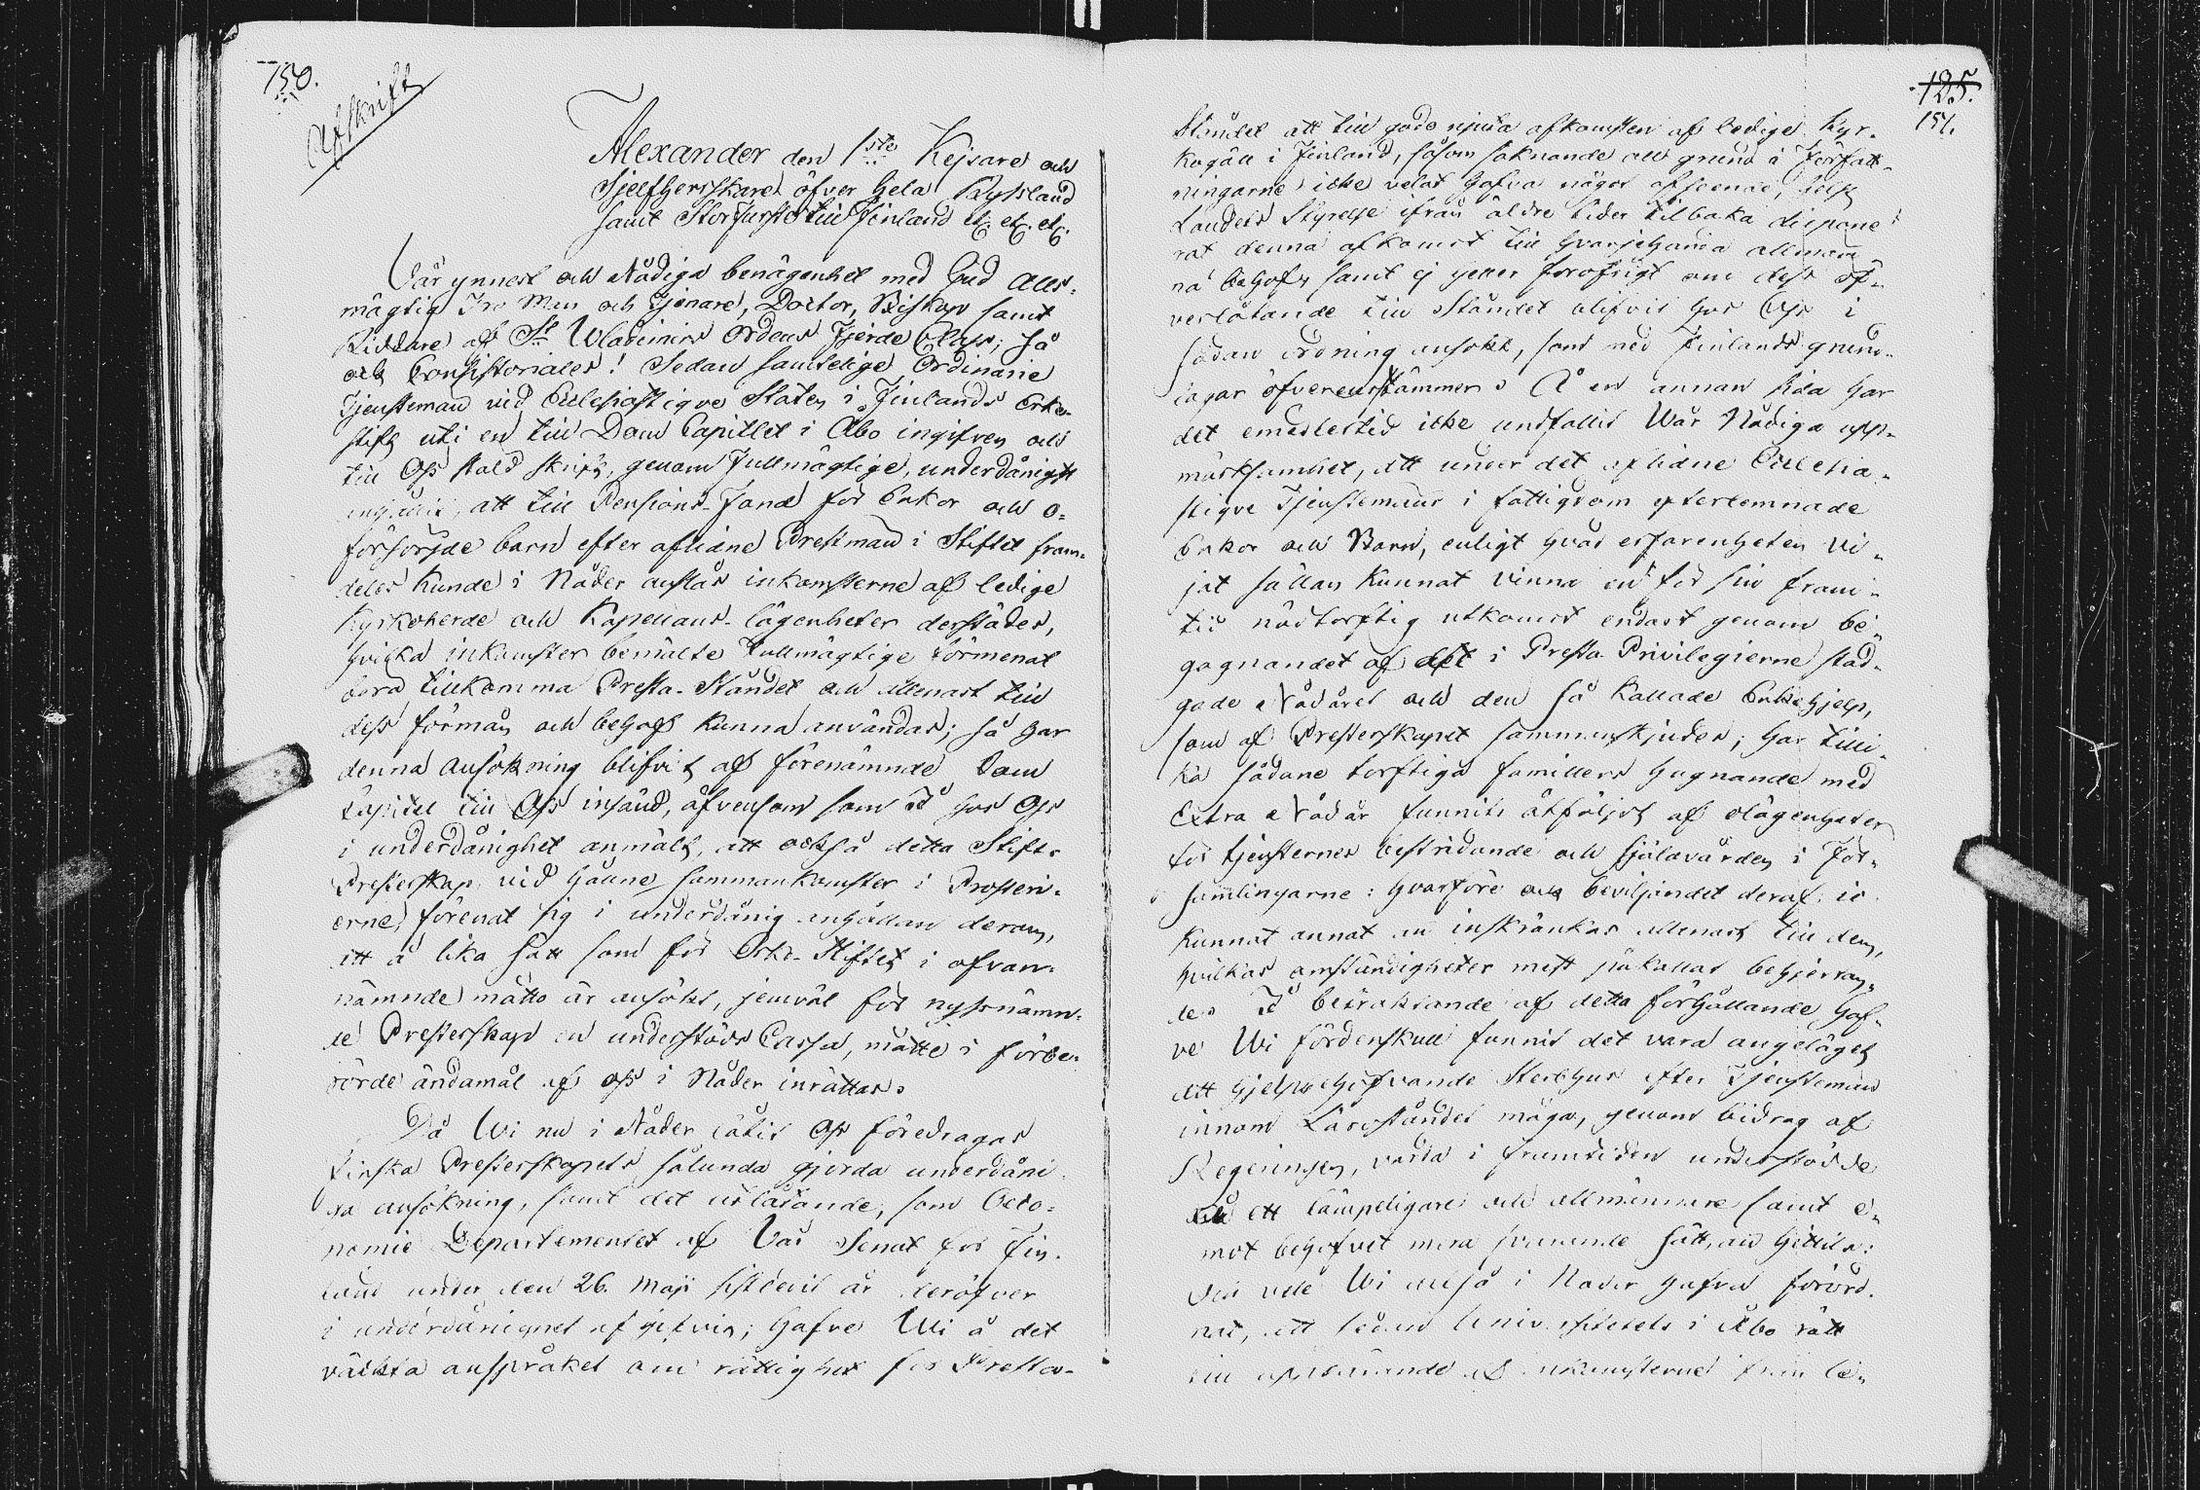 150.
Afskrift
Alexander den 1ste Kejsare och
Sjelfherrskare öfver hela Ryssland
samt StorFurste till Finland etc. etc. etc.
Vår ynnest och Nådiga benägenhet med Gud Alls-
mägtig Tro Men och Tjenare, Doctor, Biskop samt
Riddare af St Wladimirs Ordens Fjerde Class; så
ock Consistoriales! Sedan samtelige Ordinarie
Tjensteman vid Ecclesiastique Staten i Finlands Erke-
stift uti en till Dom Capitlet i Åbo ingifven och
till Oss stäld skrift, genom Fullmägtige, underdånigst
anhållit, att till Pensions-Fond för Enkor och o-
försörjde barn efter aflidne Prestman i Stiftet fram-
deles kunde i Nåder anslås inkomsterne af ledige
Kyrkoherde och Kapellans-lägenheter derstädes,
hvilka inkomster bemälte Fullmägtige förmenat
böra tillkomma Presta-Ståndet och allenast till
dess förmån och behof kunna användas; så har
denna ansökning blifvit af förenämnde Dom
Capitel till Oss insänd, äfvensom som I hos Oss
i underdånighet anmält, att också detta Stifts
Presterskap vid hållne sammankomster i Prosteri-
erne förenat sig i underdånig anhållan derom,
att å lika sätt som för Erke-Stiftet i ofvan-
nämnde måtto är ansökt, jemväl för nyssnämn-
de Presterskap en understöds Cassa, måtte i förbe-
rörde ändamål af oss i Nåder inrättas.
Då Wi nu i Nåder låtit Oss föredragas
Finska Presterskapets sålunda gjorda underdåni-
ga ansökning, samt det utlåtande, som Oeco-
nomie Departementet af Vår Senat för Fin-
land under den 26. Maji sistledit år deröfver
i underdånighet afgifvit; hafve Wi å det
väckta anspråket om rättighet för Presta-
125.
151.
Ståndet att till godo njuta afkomsten af ledige Kyr-
kogäll i Finland, såsom saknande all grund i Författ-
ningarne icke velat hafva något afseende, helst
Landets Styrelse ifrån äldre tider tilbaka dispone-
rat denna afkomst till hvarjehanda allmän-
na behof, samt ej heller förofrigt om dess öf-
verlåtande till Ståndet blifvit hos Oss i
sådan ordning ansökt, som med Finlands grund-
lagar öfverensstämmer. Å en annan sida har
det emedlertid icke undfallit Wår Nådiga upp-
märksamhet, att under det aflidne Ecclesia-
stique Tjenstemäns i fattigdom efterlemnade
Enkor och Barn, enligt hvad erfarenheten vi-
jat sällan kunnat vinna en för sin fram-
tid nödtorftig utkomst endast genom be-
gagnandet af det i Presta Privilegierne stad-
gade Nådåret och den så kallade Enkehjelp,
som af Presterskapet sammanskjudes; har tilli-
ka sådane torftiga familiers hugnande med
Extra Nådår funnits åtföljdt af olägenheter
för tjensternes bestridande och själavården i För-
samlingarne: hvarföre ock beviljandet deraf ic
kunnat annat än inskränkas allenast till dem,
hvilkas omständigheter mest påkallat behjertan-
de. I betraktande af detta förhållande haf-
ve Wi fördenskull funnit det vara angeläget
att hjelpbehöfvande Sterbhus efter Tjensteman
innom Läroståndet måga, genom bidrag af
Regeringen, varda i framtiden understödde
på ett lämpeligare och allmännare samt e-
mot behofvet mera svarande sätt, än hittils:
och vele Wi altså i Nåder hafva förord-
nat, att sedan Universitetets i Åbo rätt
till uppbärande af inkomsterne från le-